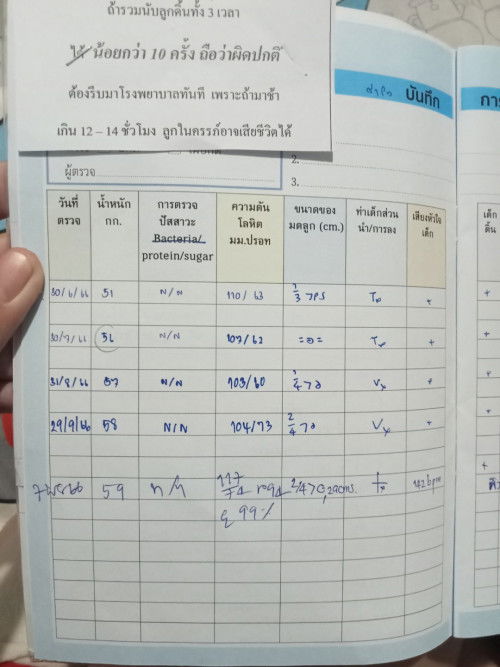 ถ้ารวมนับลูกดิ้นทั้ง 3 เวลา
ได้ น้อยกว่า 10 ครั้ง ถือว่าผิดปกติ
ต้องรีบมาโรงพยาบาลทันที เพราะถ้ามาช้า
เกิน 12 – 14 ชั่วโมง ลูกในครรภ์อาจเสียชีวิตได้
บันทึก
กา
ผู้ตรวจ
2.
3.
วันที่ตรวจ น้ำหนัก กก. การตรวจปัสสาวะ Bacteria/protein/sugar ความดันโลหิต มม.ปรอท ขนาดของมดลูก (cm.) ท่าเด็กส่วนนำ/การลง เสียงหัวใจเด็ก เด็กดิ้น
30/6/66 51 N/N 110/63 1/3 >PS + +
30/7/66 N/N 107/62 =๏= + +
31/8/66 57 N/N 103/60 1/4 >๏ Vx + +
29/9/66 58 N/N 104/73 2/4 >๏ Vx +
59 N/N 117/74 142 bpm +
99%